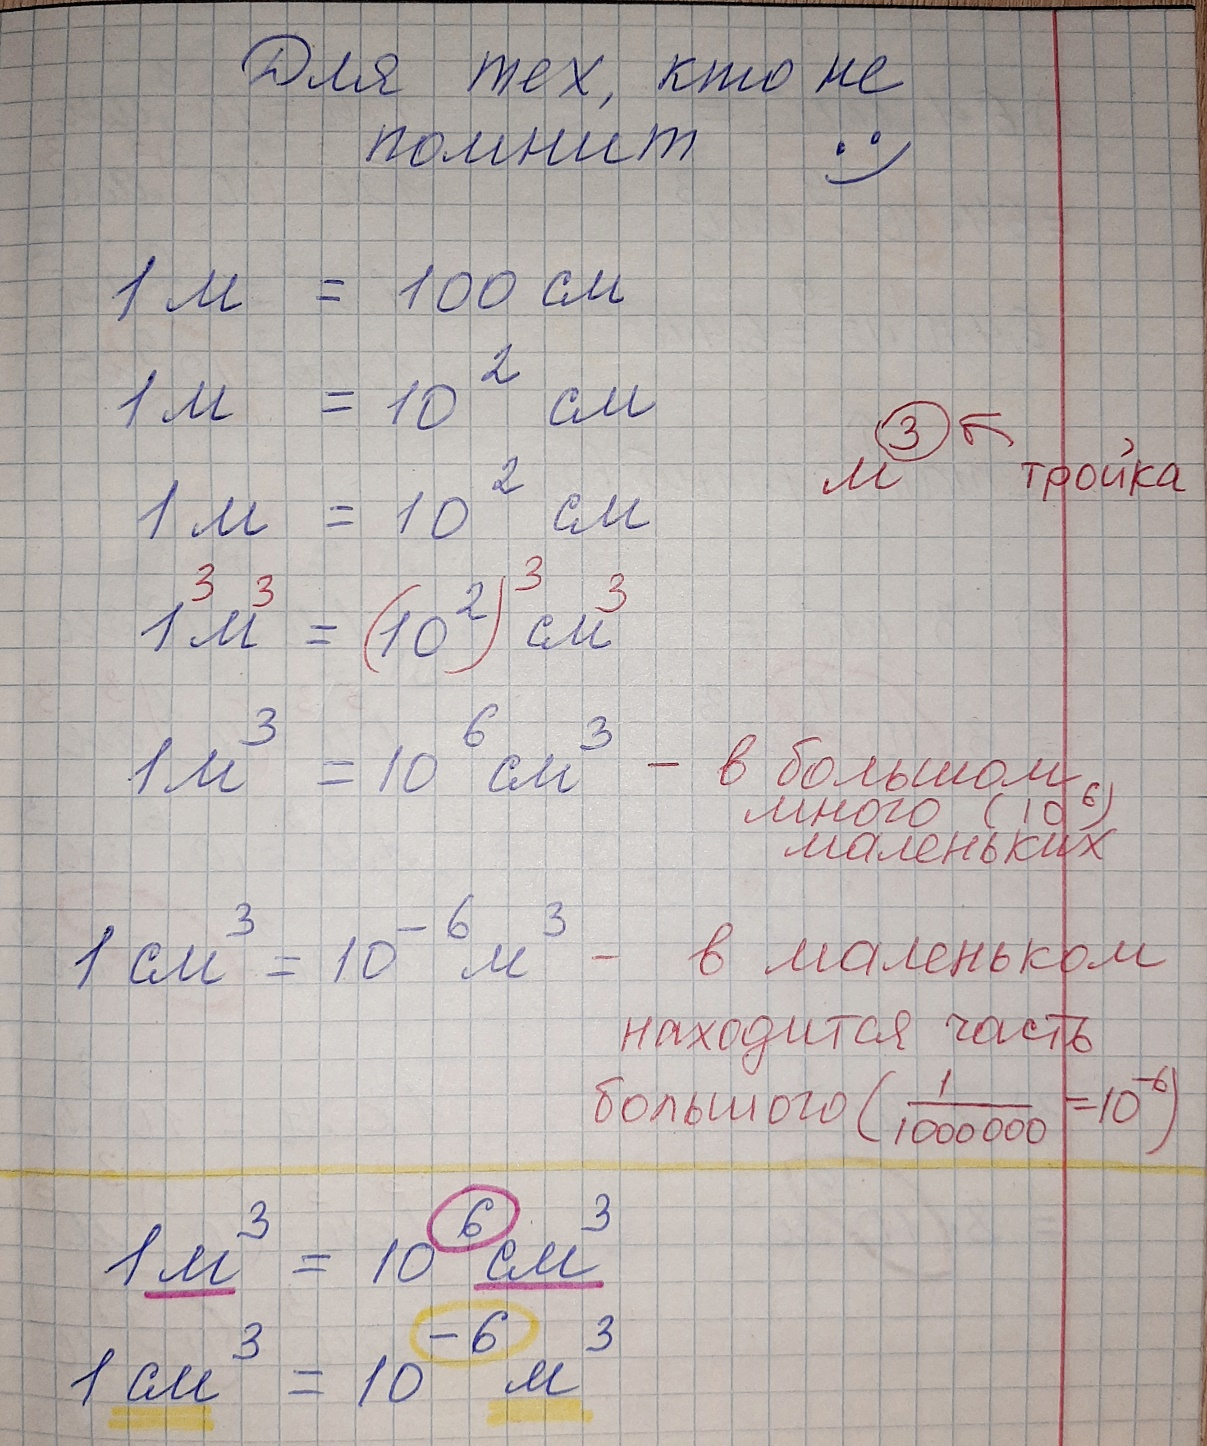 Для тех, кто не
помнит :)
1 м = 100 см
1 м = 10² см
м³ ← тройка
1 м = 10² см
1³м³ = (10²)³ см³
1 м³ = 10⁶ см³ - в большом
много (10⁶)
маленьких
1 см³ = 10⁻⁶ м³ - в маленьком
находится часть
большого (1/1000000 = 10⁻⁶)
1 м³ = 10⁶ см³
1 см³ = 10⁻⁶ м³